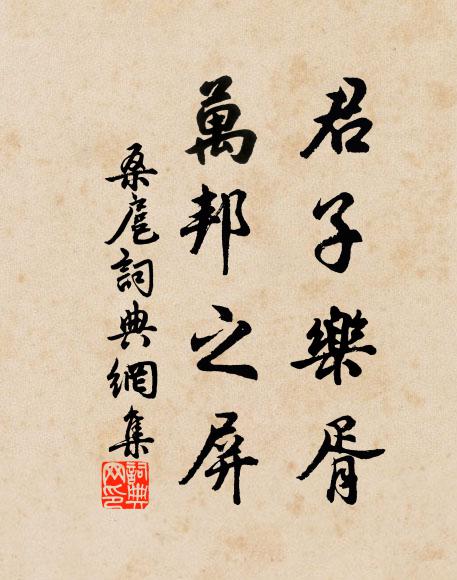 君子樂胥
萬邦之屏
桑扈詞典網集
詞典网印